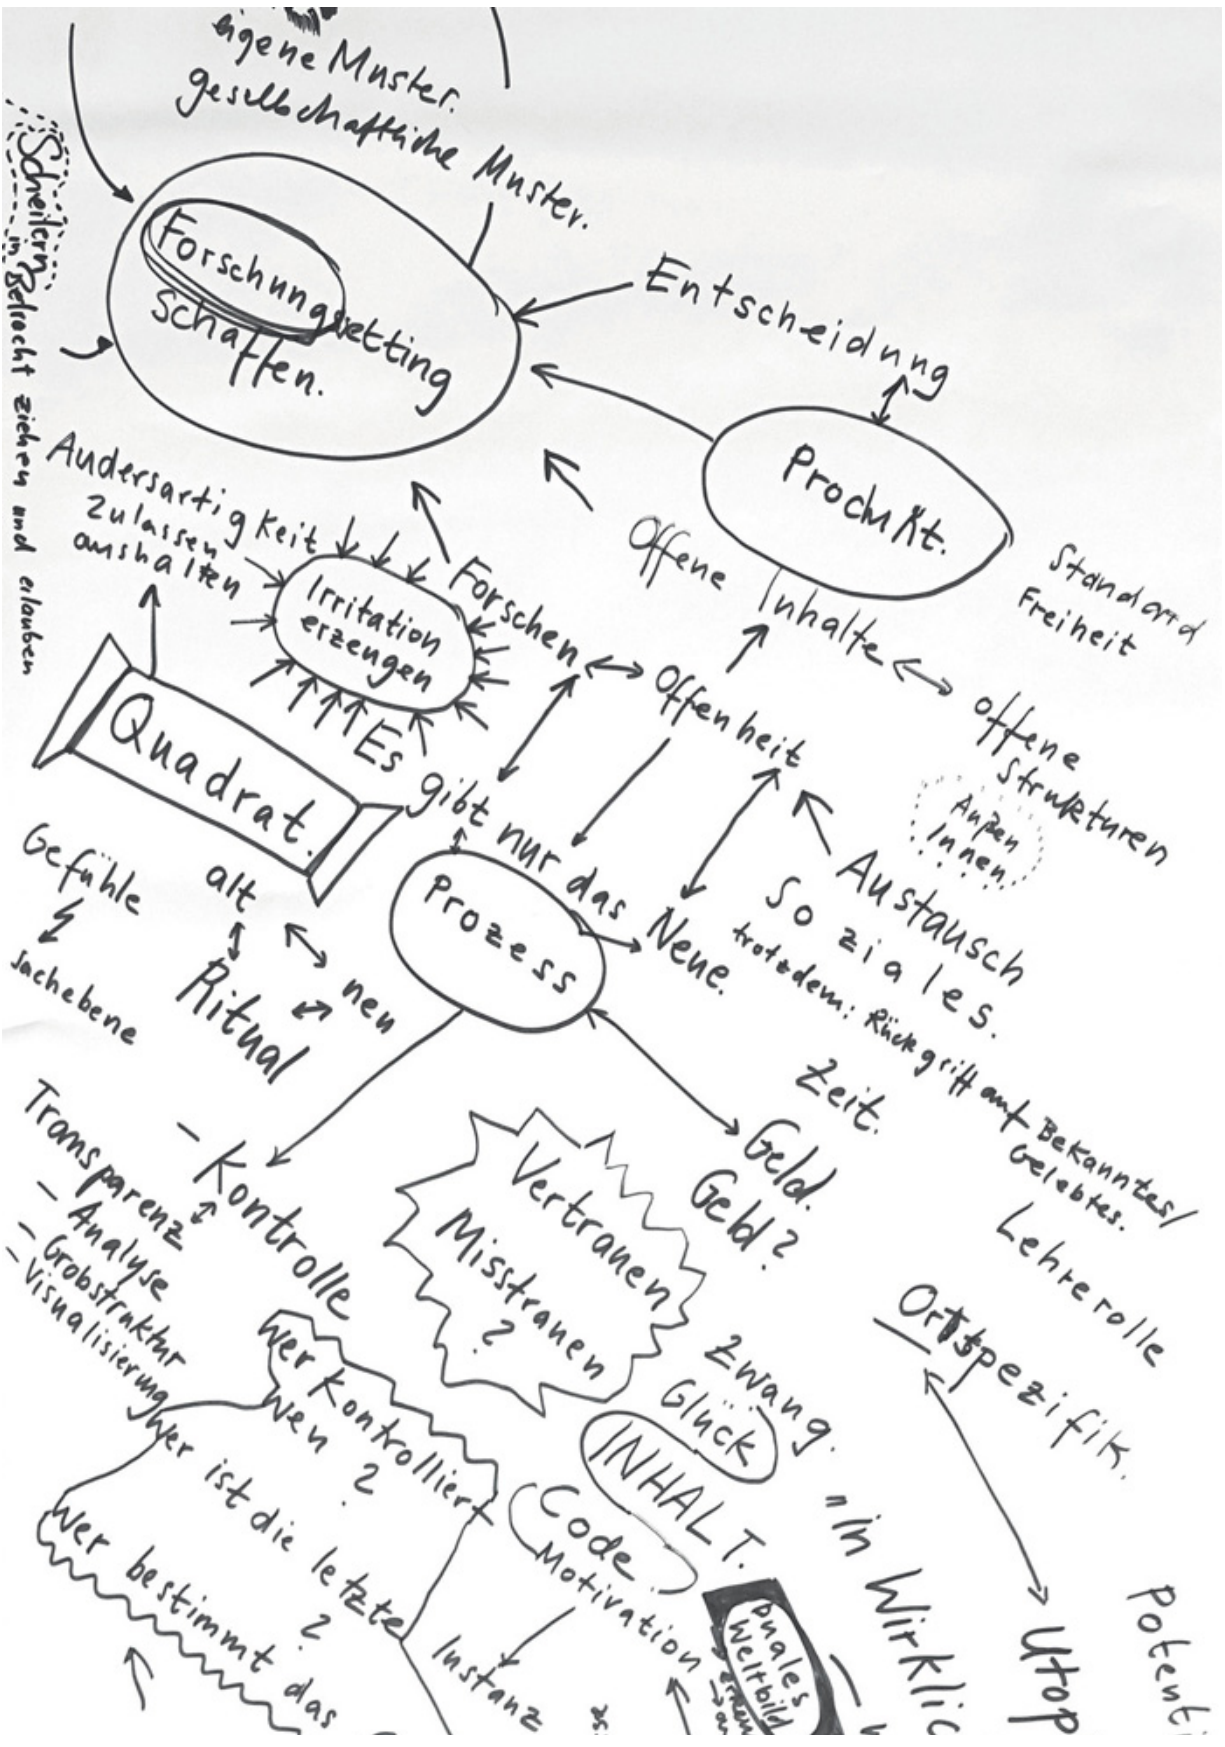 eigene Muster.
gesellschaftliche Muster.
Scheitern
in Betracht ziehen und erlauben
Forschungssetting
schaffen.
Entscheidung
Produkt.
Standard
Freiheit
Andersartigkeit
zulassen
aushalten
Irritation
erzeugen
Forschen
Offene
Inhalte
Offenheit
offene
Strukturen
Außen
Innen
Quadrat.
Es gibt nur das Neue.
Prozess
Austausch
Soziales.
trotzdem: Rückgriff auf Bekanntes/
Gelebtes.
Gefühle
Sachebene
alt
neu
Ritual
Zeit.
Geld.
Geld?
Lehrerolle
Transparenz
- Analyse
- Grobstruktur
- Visualisierung
- Kontrolle
Vertrauen
Misstrauen
?
Ortsspezifik.
Zwang.
Glück
INHALT.
Code
Motivation
Wer kontrolliert
wen ?
Wer ist die letzte Instanz
?
Wer bestimmt das
Duales
Weltbild
"In Wirklic
Utop
Potenti